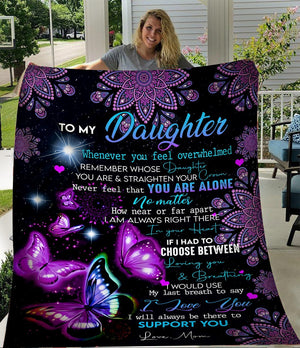 TO MY Daughter
Whenever you feel overwhelmed
REMEMBER WHOSE Daughter
YOU ARE & STRAIGHTEN YOUR Crown.
Never feel that YOU ARE ALONE
No matter
How near or far apart
I AM ALWAYS RIGHT THERE
In your Heart
IF I HAD TO
CHOOSE BETWEEN
Loving you
& Breathing
I WOULD USE
My last breath to say
I Love You
I will always be there to
SUPPORT YOU
Love, Mom